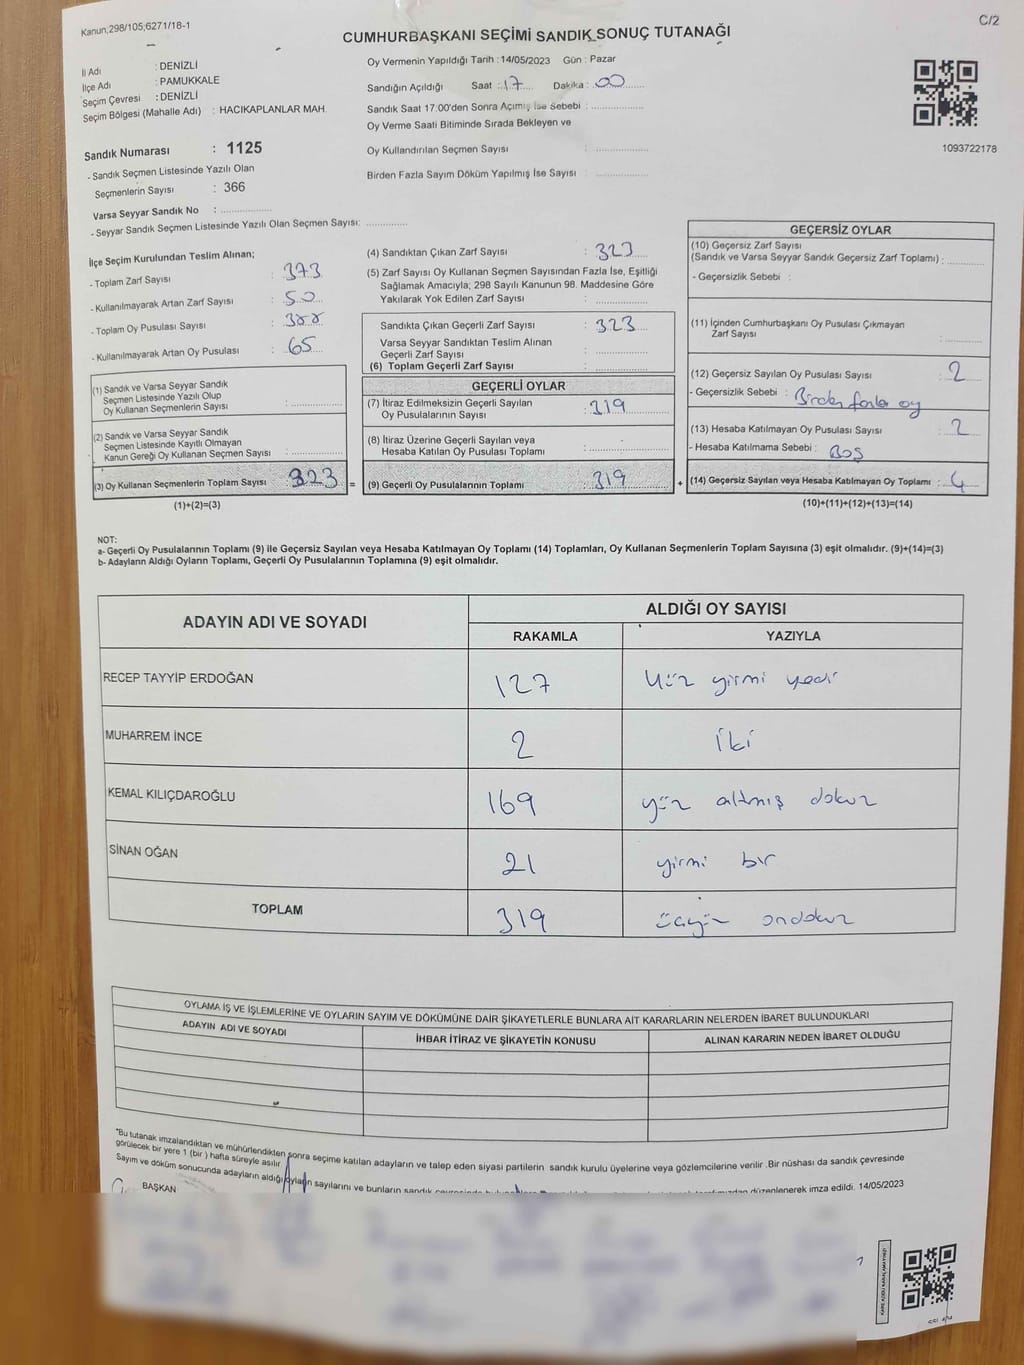 Kanun,298/105;6271/18-1
C/2
CUMHURBAŞKANI SEÇİMİ SANDIK SONUÇ TUTANAĞI
İl Adı : DENİZLİ
İlçe Adı : PAMUKKALE
Seçim Çevresi : DENİZLİ
Seçim Bölgesi (Mahalle Adı) : HACIKAPLANLAR MAH.
Sandık Numarası : 1125
- Sandık Seçmen Listesinde Yazılı Olan
Seçmenlerin Sayısı : 366
Varsa Seyyar Sandık No : ................
- Seyyar Sandık Seçmen Listesinde Yazılı Olan Seçmen Sayısı: ............
Oy Vermenin Yapıldığı Tarih : 14/05/2023 Gün : Pazar
Sandığın Açıldığı Saat : 17 Dakika : 00
Sandık Saat 17.00'den Sonra Açımış İse Sebebi : ................
Oy Verme Saati Bitiminde Sırada Bekleyen ve
Oy Kullandırılan Seçmen Sayısı : ................
Birden Fazla Sayım Döküm Yapılmış İse Sayısı : ................
1093722178
İlçe Seçim Kurulundan Teslim Alınan;
- Toplam Zarf Sayısı : 373
- Kullanılmayarak Artan Zarf Sayısı : 50
- Toplam Oy Pusulası Sayısı : 388
- Kullanılmayarak Artan Oy Pusulası : 65
(1) Sandık ve Varsa Seyyar Sandık
Seçmen Listesinde Yazılı Olup
Oy Kullanan Seçmenlerin Sayısı : ................
(2) Sandık ve Varsa Seyyar Sandık
Seçmen Listesinde Kayıtlı Olmayan
Kanun Gereği Oy Kullanan Seçmen Sayısı : ................
(3) Oy Kullanan Seçmenlerin Toplam Sayısı : 323 =
(1)+(2)=(3)
(4) Sandıktan Çıkan Zarf Sayısı : 323
(5) Zarf Sayısı Oy Kullanan Seçmen Sayısından Fazla İse, Eşitliği
Sağlamak Amacıyla; 298 Sayılı Kanunun 98. Maddesine Göre
Yakılarak Yok Edilen Zarf Sayısı : ................
Sandıkta Çıkan Geçerli Zarf Sayısı : 323
Varsa Seyyar Sandıktan Teslim Alınan
Geçerli Zarf Sayısı : ................
(6) Toplam Geçerli Zarf Sayısı : ................
GEÇERLİ OYLAR
(7) İtiraz Edilmeksizin Geçerli Sayılan
Oy Pusulalarının Sayısı : 319
(8) İtiraz Üzerine Geçerli Sayılan veya
Hesaba Katılan Oy Pusulası Toplamı : ................
(9) Geçerli Oy Pusulalarının Toplamı : 319 +
GEÇERSİZ OYLAR
(10) Geçersiz Zarf Sayısı
(Sandık ve Varsa Seyyar Sandık Geçersiz Zarf Toplamı) : ............
- Geçersizlik Sebebi :
(11) İçinden Cumhurbaşkanı Oy Pusulası Çıkmayan
Zarf Sayısı : ............
(12) Geçersiz Sayılan Oy Pusulası Sayısı : 2
- Geçersizlik Sebebi : Birden fazla oy
(13) Hesaba Katılmayan Oy Pusulası Sayısı : 2
- Hesaba Katılmama Sebebi : Boş
(14) Geçersiz Sayılan veya Hesaba Katılmayan Oy Toplamı : 4
(10)+(11)+(12)+(13)=(14)
NOT:
a- Geçerli Oy Pusulalarının Toplamı (9) ile Geçersiz Sayılan veya Hesaba Katılmayan Oy Toplamı (14) Toplamları, Oy Kullanan Seçmenlerin Toplam Sayısına (3) eşit olmalıdır. (9)+(14)=(3)
b- Adayların Aldığı Oyların Toplamı, Geçerli Oy Pusulalarının Toplamına (9) eşit olmalıdır.
ADAYIN ADI VE SOYADI ALDIĞI OY SAYISI
RAKAMLA YAZIYLA
RECEP TAYYİP ERDOĞAN 127 Yüz yirmi yedi
MUHARREM İNCE 2 iki
KEMAL KILIÇDAROĞLU 169 yüz altmış dokuz
SİNAN OĞAN 21 yirmi bir
TOPLAM 319 üçyüz ondokuz
OYLAMA İŞ VE İŞLEMLERİNE VE OYLARIN SAYIM VE DÖKÜMÜNE DAİR ŞİKAYETLERLE BUNLARA AİT KARARLARIN NELERDEN İBARET BULUNDUKLARI
ADAYIN ADI VE SOYADI İHBAR İTİRAZ VE ŞİKAYETİN KONUSU ALINAN KARARIN NEDEN İBARET OLDUĞU
*Bu tutanak imzalandıktan ve mühürlendikten sonra seçime katılan adayların ve talep eden siyasi partilerin sandık kurulu üyelerine veya gözlemcilerine verilir .Bir nüshası da sandık çevresinde
görülecek bir yere 1 (bir ) hafta süreyle asılır.
Sayım ve döküm sonucunda adayların aldığı oyların sayılarını ve bunların sandık düzenlenerek imza edildi. 14/05/2023
BAŞKAN